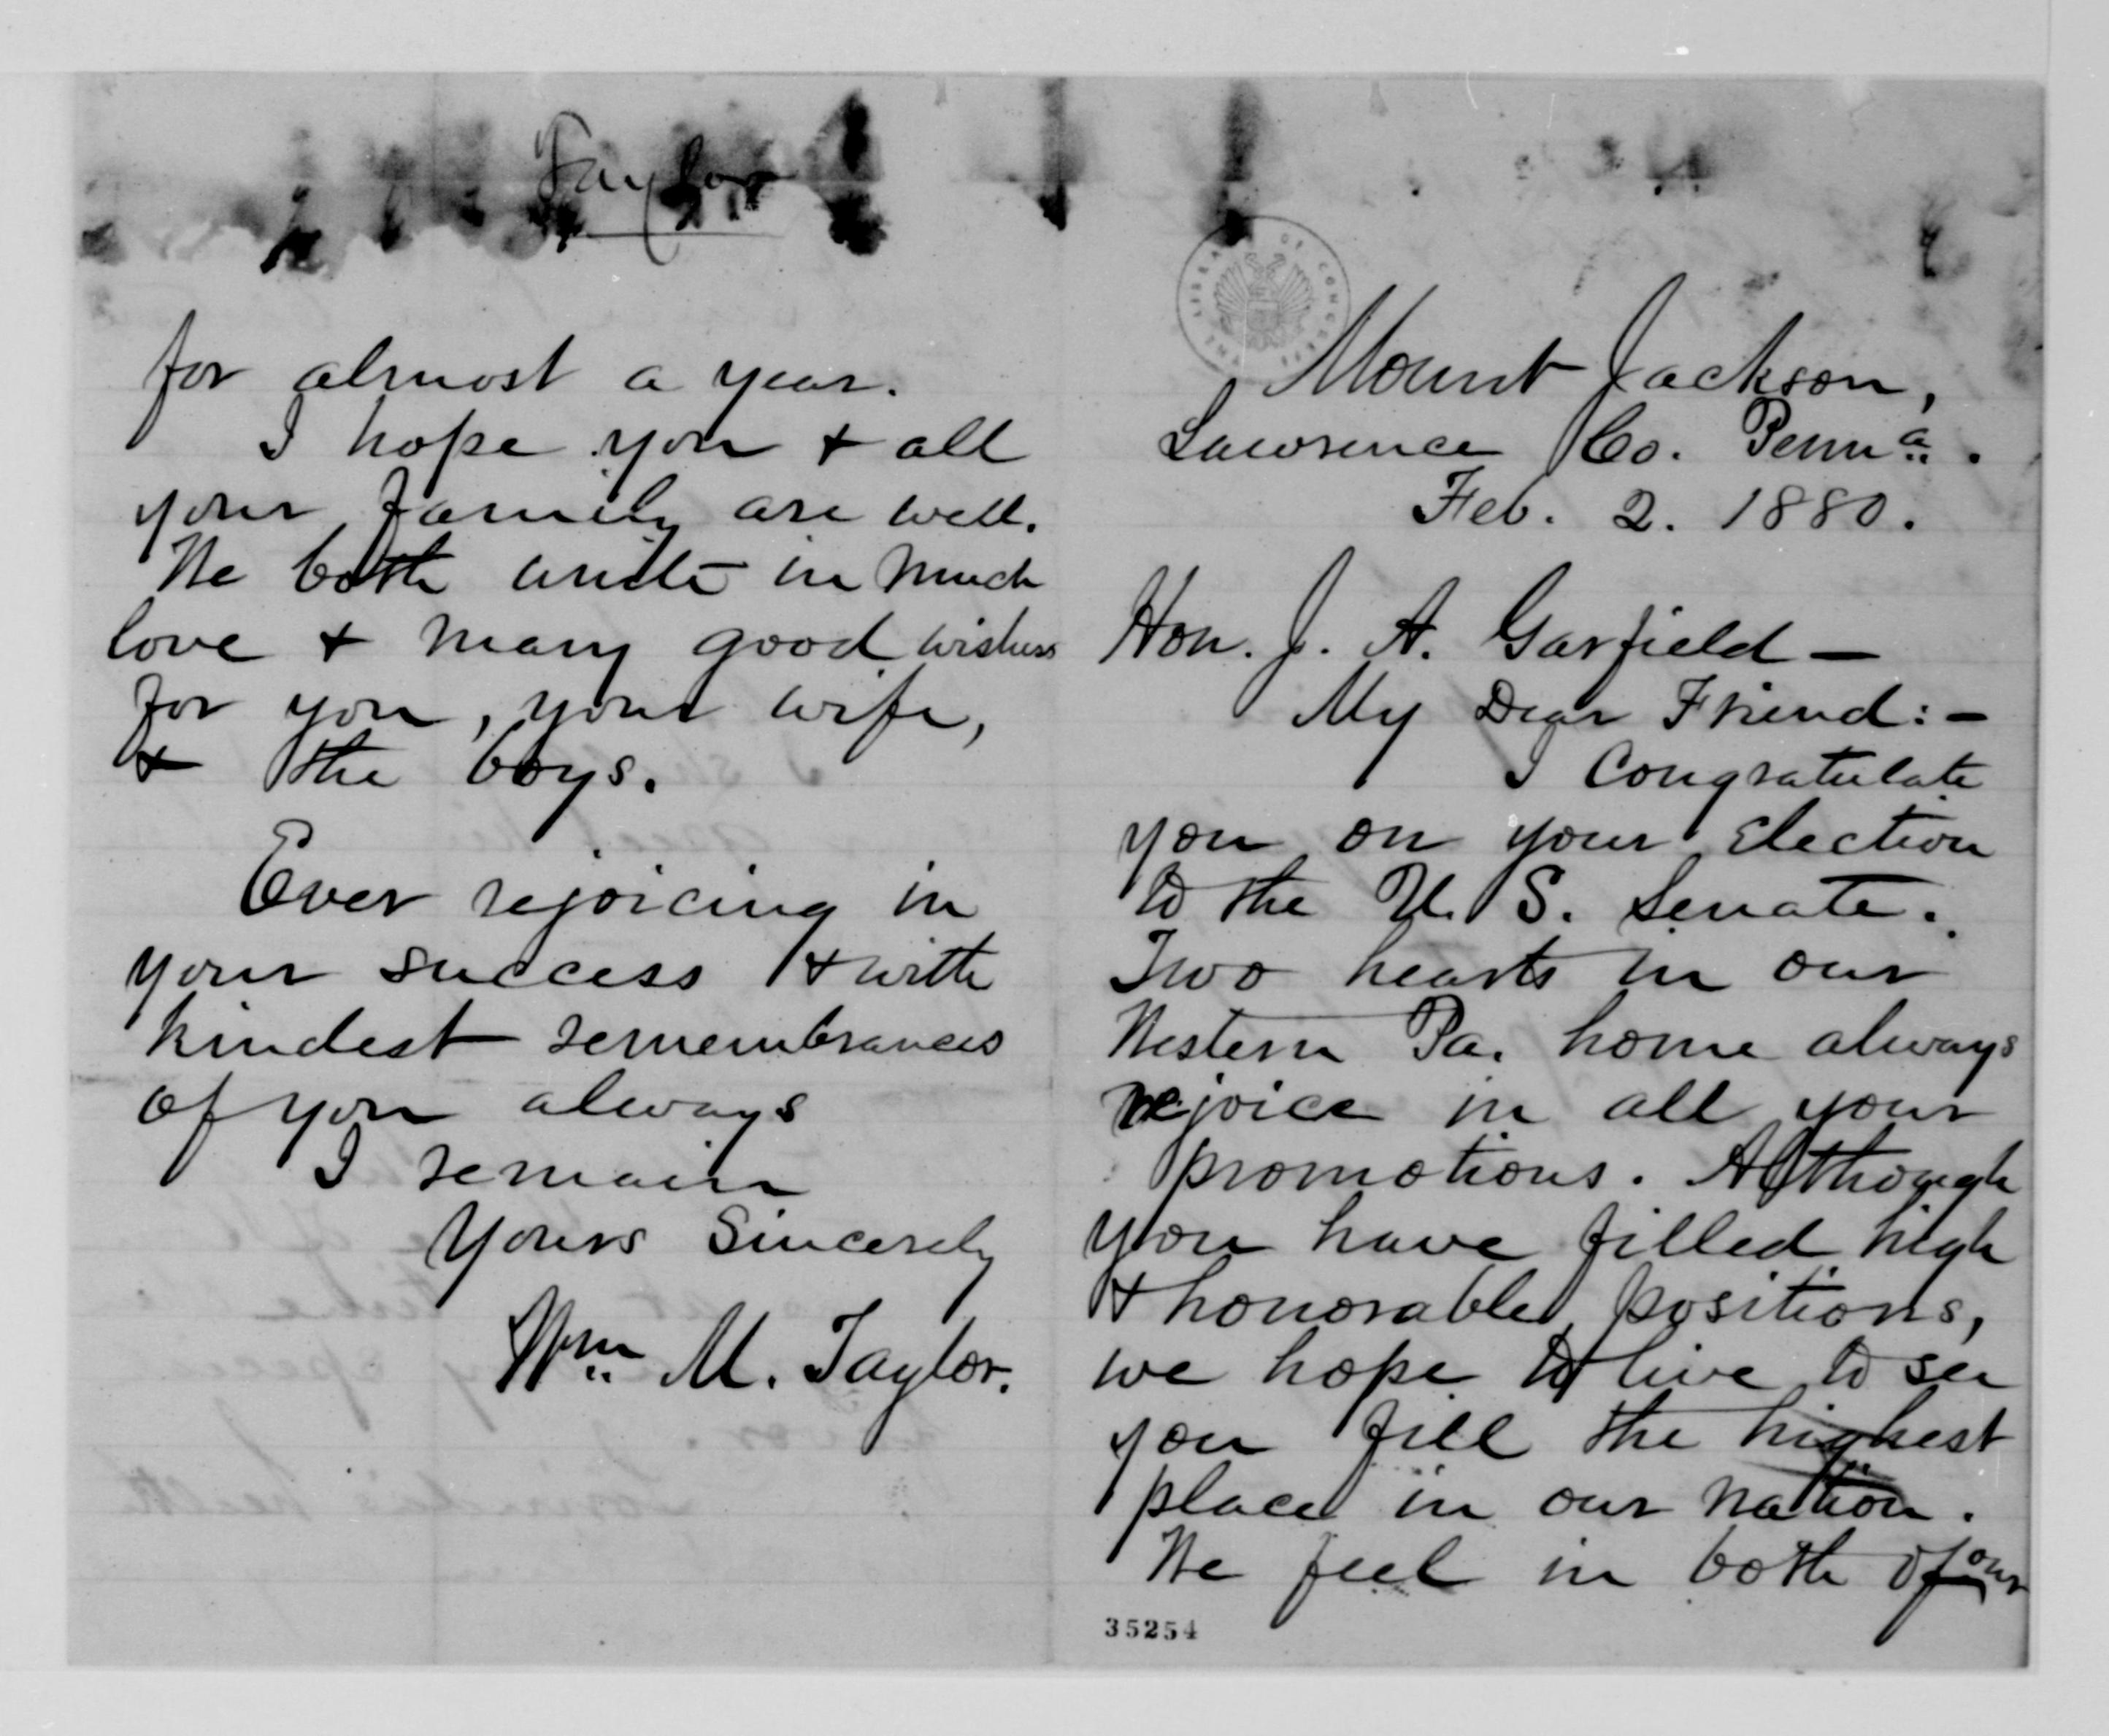 Mount Jackson,
Lawrence Co. Penna.
Feb. 2. 1880.
Hon. J. A. Garfield —
My Dear Friend: —
I Congratulate
you on your Election
to the U. S. Senate.
Two hearts in our
Western Pa. home always
rejoice in all your
promotions. Although
you have filled high
& honorable positions,
we hope to live to see
you fill the highest
place in our nation.
We feel in both of our
35254
Taylor
for almost a year.
I hope you & all
your family are well.
We both unite in much
love & many good wishes
for you, your wife,
& the boys.
Ever rejoicing in
your success & with
kindest remembrances
of you always
I remain
Yours Sincerely
Wm. M. Taylor.
THE LIBRARY OF CONGRESS